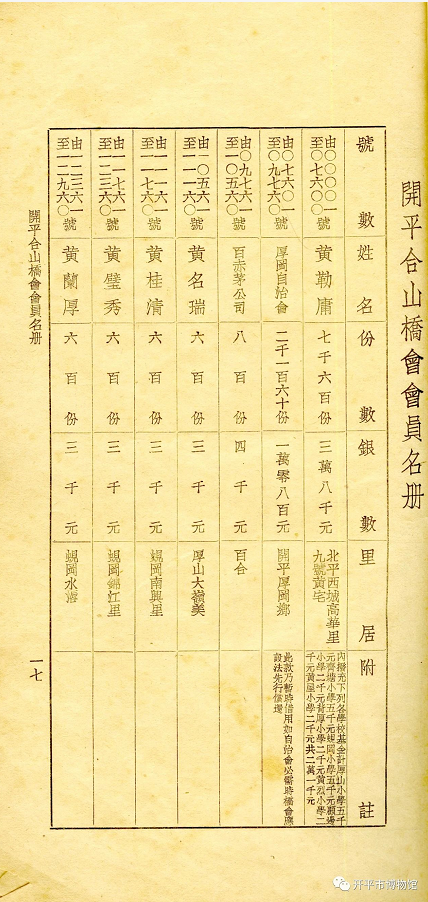 開平合山橋會會員名册
號數 姓名 份數 銀數 里居 附註
由〇〇〇〇一
至〇七六〇〇號 黃勒庸 七千六百份 三萬八千元 北平西城高華里
九號黃宅
內撥充下列各學校基金計厚山小學五千
元 塘小學五千元蜆岡小學五千元
小學二千元 厚小學二千元黃 小學二
千元黃屋小學二千元共二萬一千元
由〇七六〇一
至〇九七六〇號 厚岡自治會 二千一百六十份 一萬零八百元 開平厚岡鄉
此款乃暫時借用如自治會必需時橋會應
設法先行償還
由〇九七六一
至一〇五六〇號 百赤茅公司 八百份 四千元 百合
由一〇五六一
至一一一六〇號 黃名瑞 六百份 三千元 厚山大嶺美
由一一一六一
至一一七六〇號 黃桂清 六百份 三千元 蜆岡南興里
由一一七六一
至一二三六〇號 黃璧秀 六百份 三千元 蜆岡錦江里
由一二三六一
至一二九六〇號 黃蘭厚 六百份 三千元 蜆岡水
開平合山橋會會員名册
一七
开平市博物馆